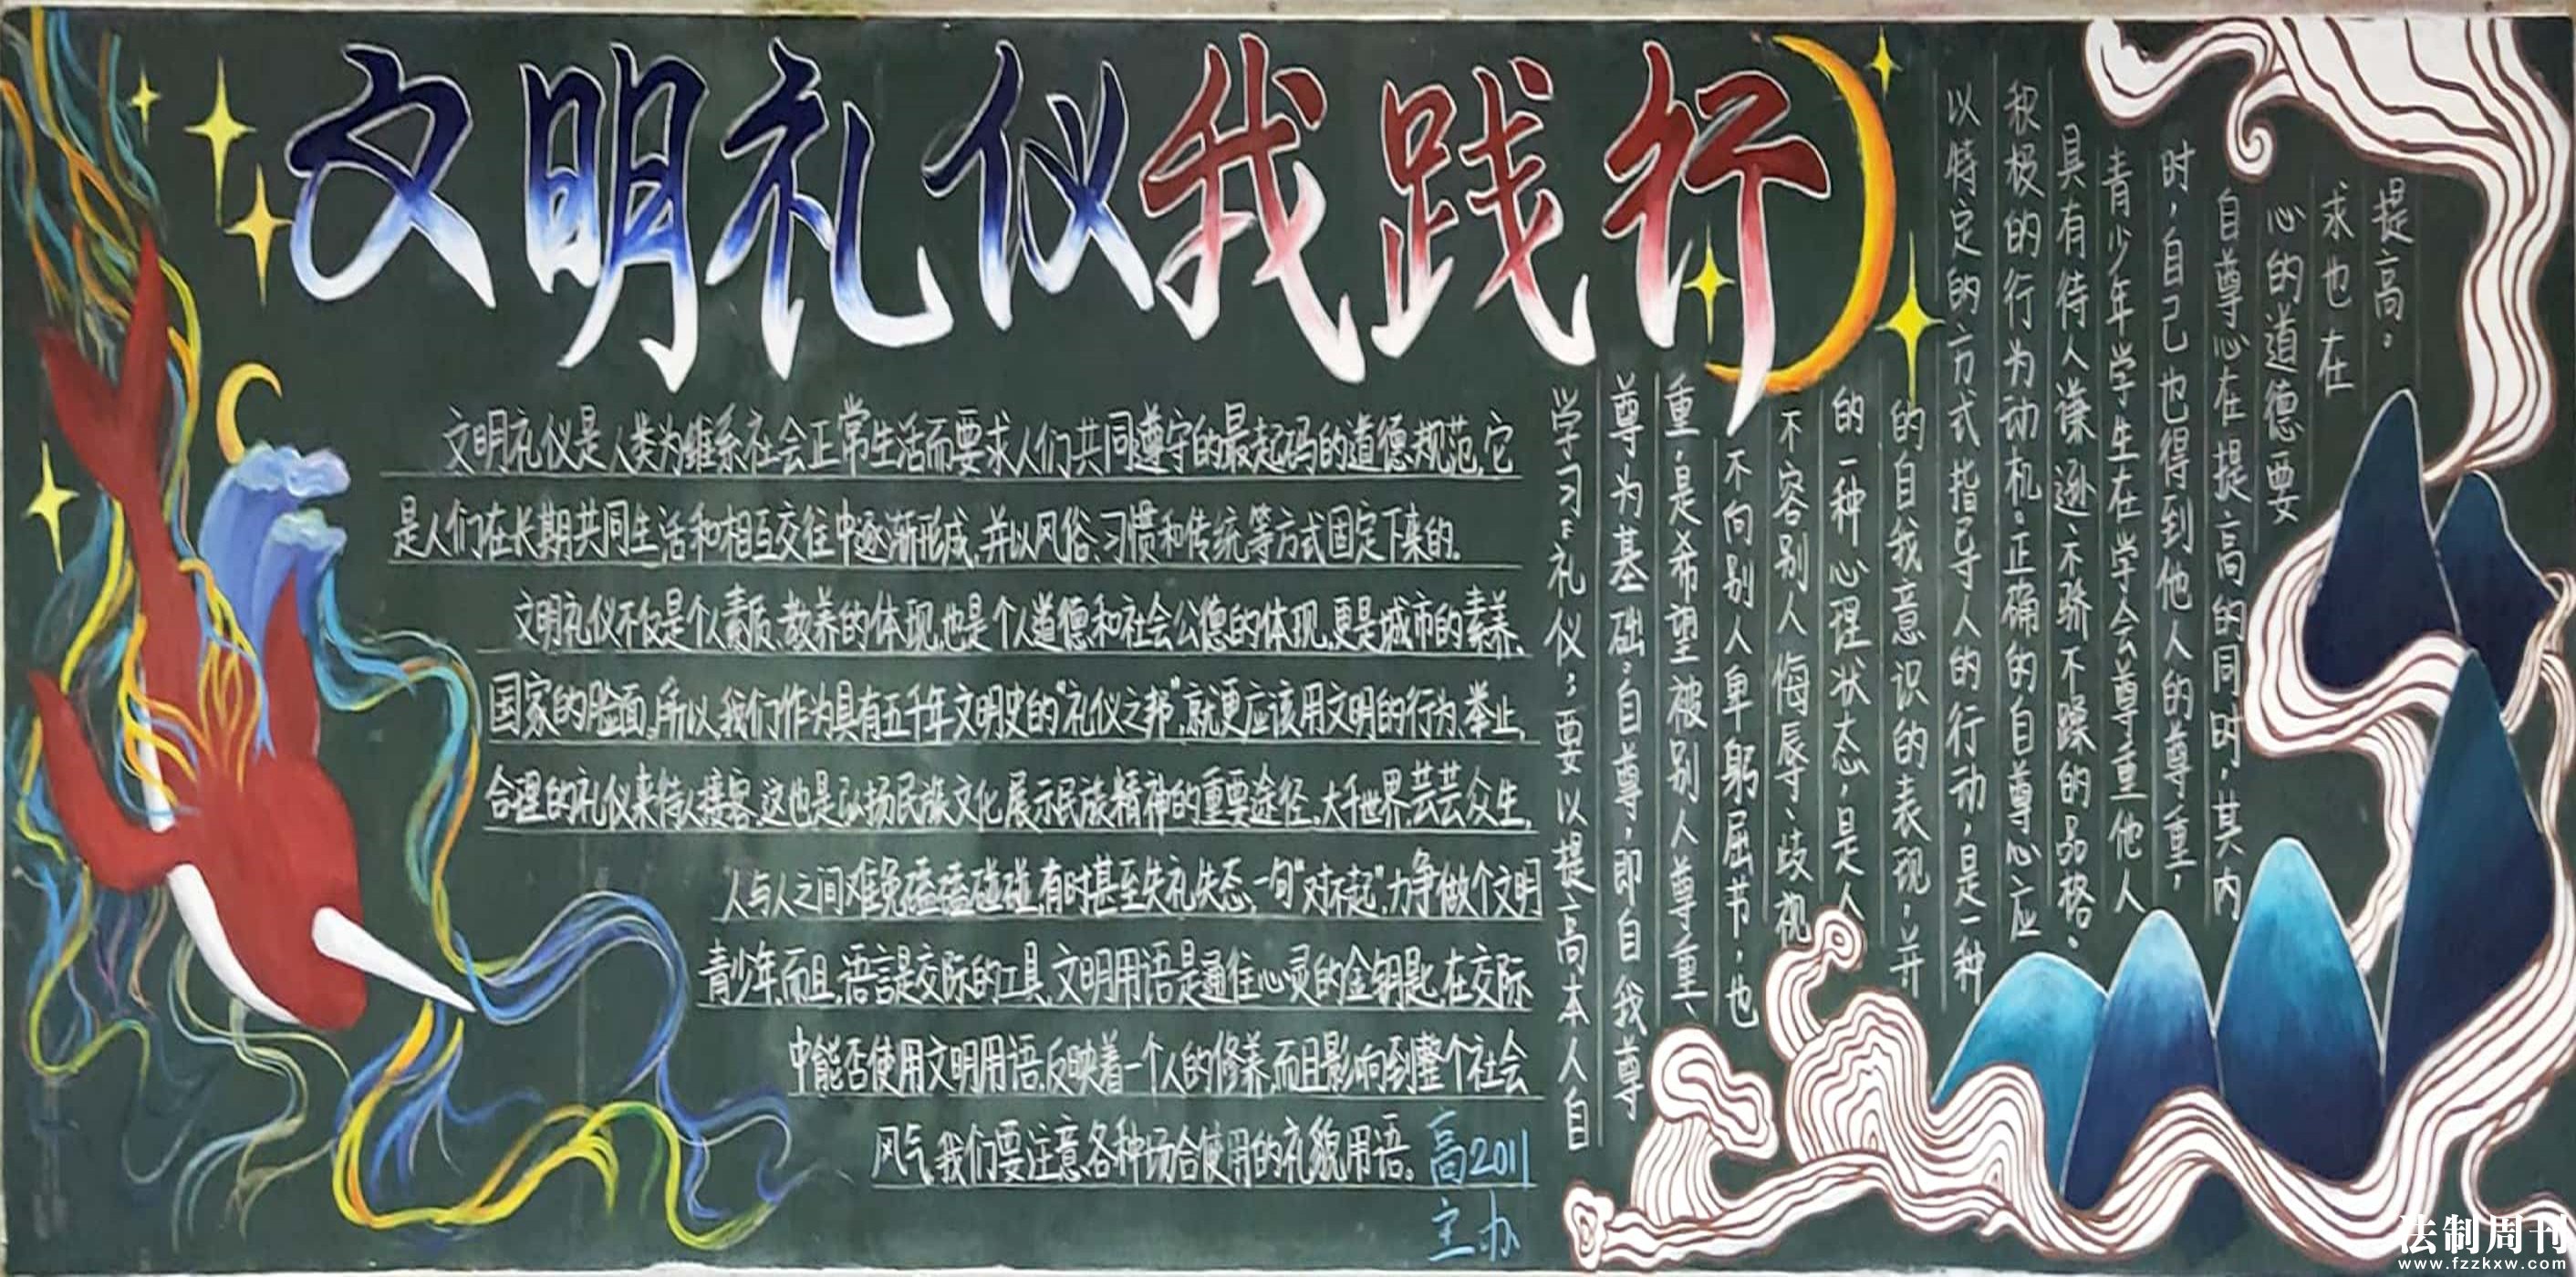 文明礼仪我践行
文明礼仪是人类为维系社会正常生活而要求人们共同遵守的最起码的道德规范,它
是人们在长期共同生活和相互交往中逐渐形成,并以风俗、习惯和传统等方式固定下来的.
文明礼仪不仅是个人素质、教养的体现,也是个人道德和社会公德的体现,更是城市的素养.
国家的脸面。所以,我们作为具有五千年文明史的“礼仪之邦”,就更应该用文明的行为、举止,
合理的礼仪来待人接客.这也是弘扬民族文化展示民族精神的重要途径.大千世界.芸芸众生.
人与人之间难免磕磕碰碰,有时甚至失礼失态,一句“对不起”,力争做个文明
青少年.而且,语言是交际的工具,文明用语是通往心灵的金钥匙,在交际
中能否使用文明用语,反映着一个人的修养,而且影响到整个社会
风气.我们要注意各种场合使用的礼貌用语。高2011
主办
学习:礼仪:要以提高本人自
尊为基础。自尊,即自我尊
重,是希望被别人尊重、
不向别人卑躬屈节;也
不容别人侮辱、歧视
的一种心理状态,是人
的自我意识的表现,并
以特定的方式指导人的行动,是一种
积极的行为动机。正确的自尊心应
具有待人谦逊、不骄不躁的品格。
青少年学生在学会尊重他人
时,自己也得到他人的尊重,
自尊心在提高的同时,其内
心的道德要
求也在
提高。
法制周刊
www.fzzkxw.com